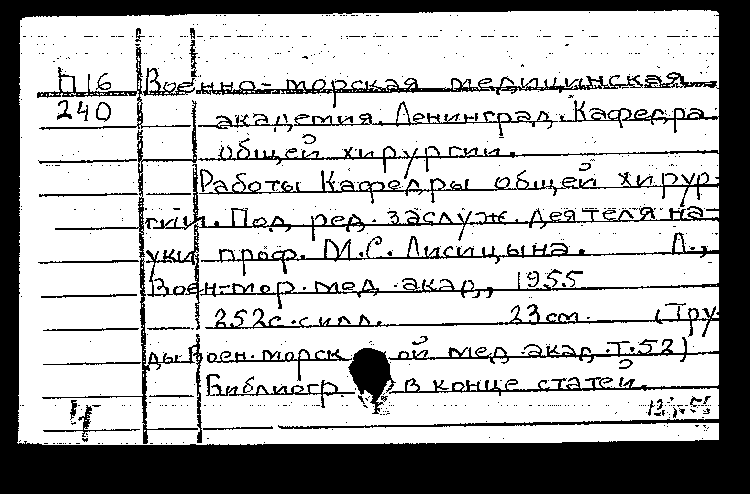 П16 Военно-морская медицинская
240 академия. Ленинград. Кафедра
общей хирургии.
Работы Кафедры общей хирур-
гии. Под ред. заслуж. деятеля на-
уки проф. М.С. Лисицына. Л.,
Воен-мор. мед. акад., 1955
252с. с илл. 23см. (Тру-
ды Воен. морск ой мед. акад. Т.52)
Библиогр в конце статей.